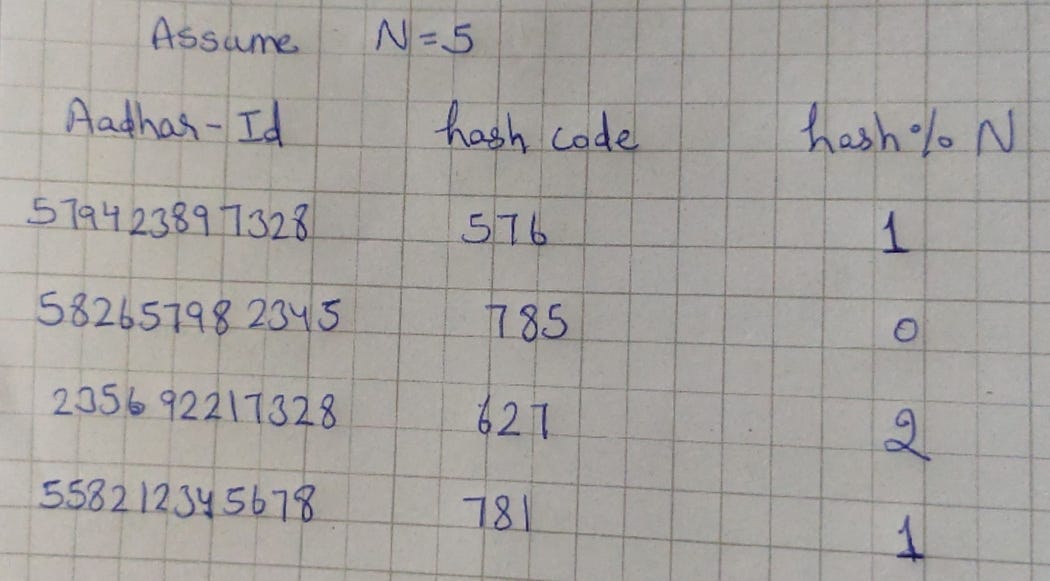 Assume N=5
Aadhar-Id hash code hash % N
579423897328 576 1
582657982345 785 0
235692217328 627 2
558212345678 781 1